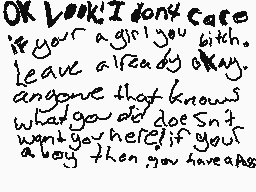 OK Look! I dont care
if your a girl you bitch.
Leave already okay.
anyone that knows
what you did doesn't
want you here! if your
a boy then you have a pass